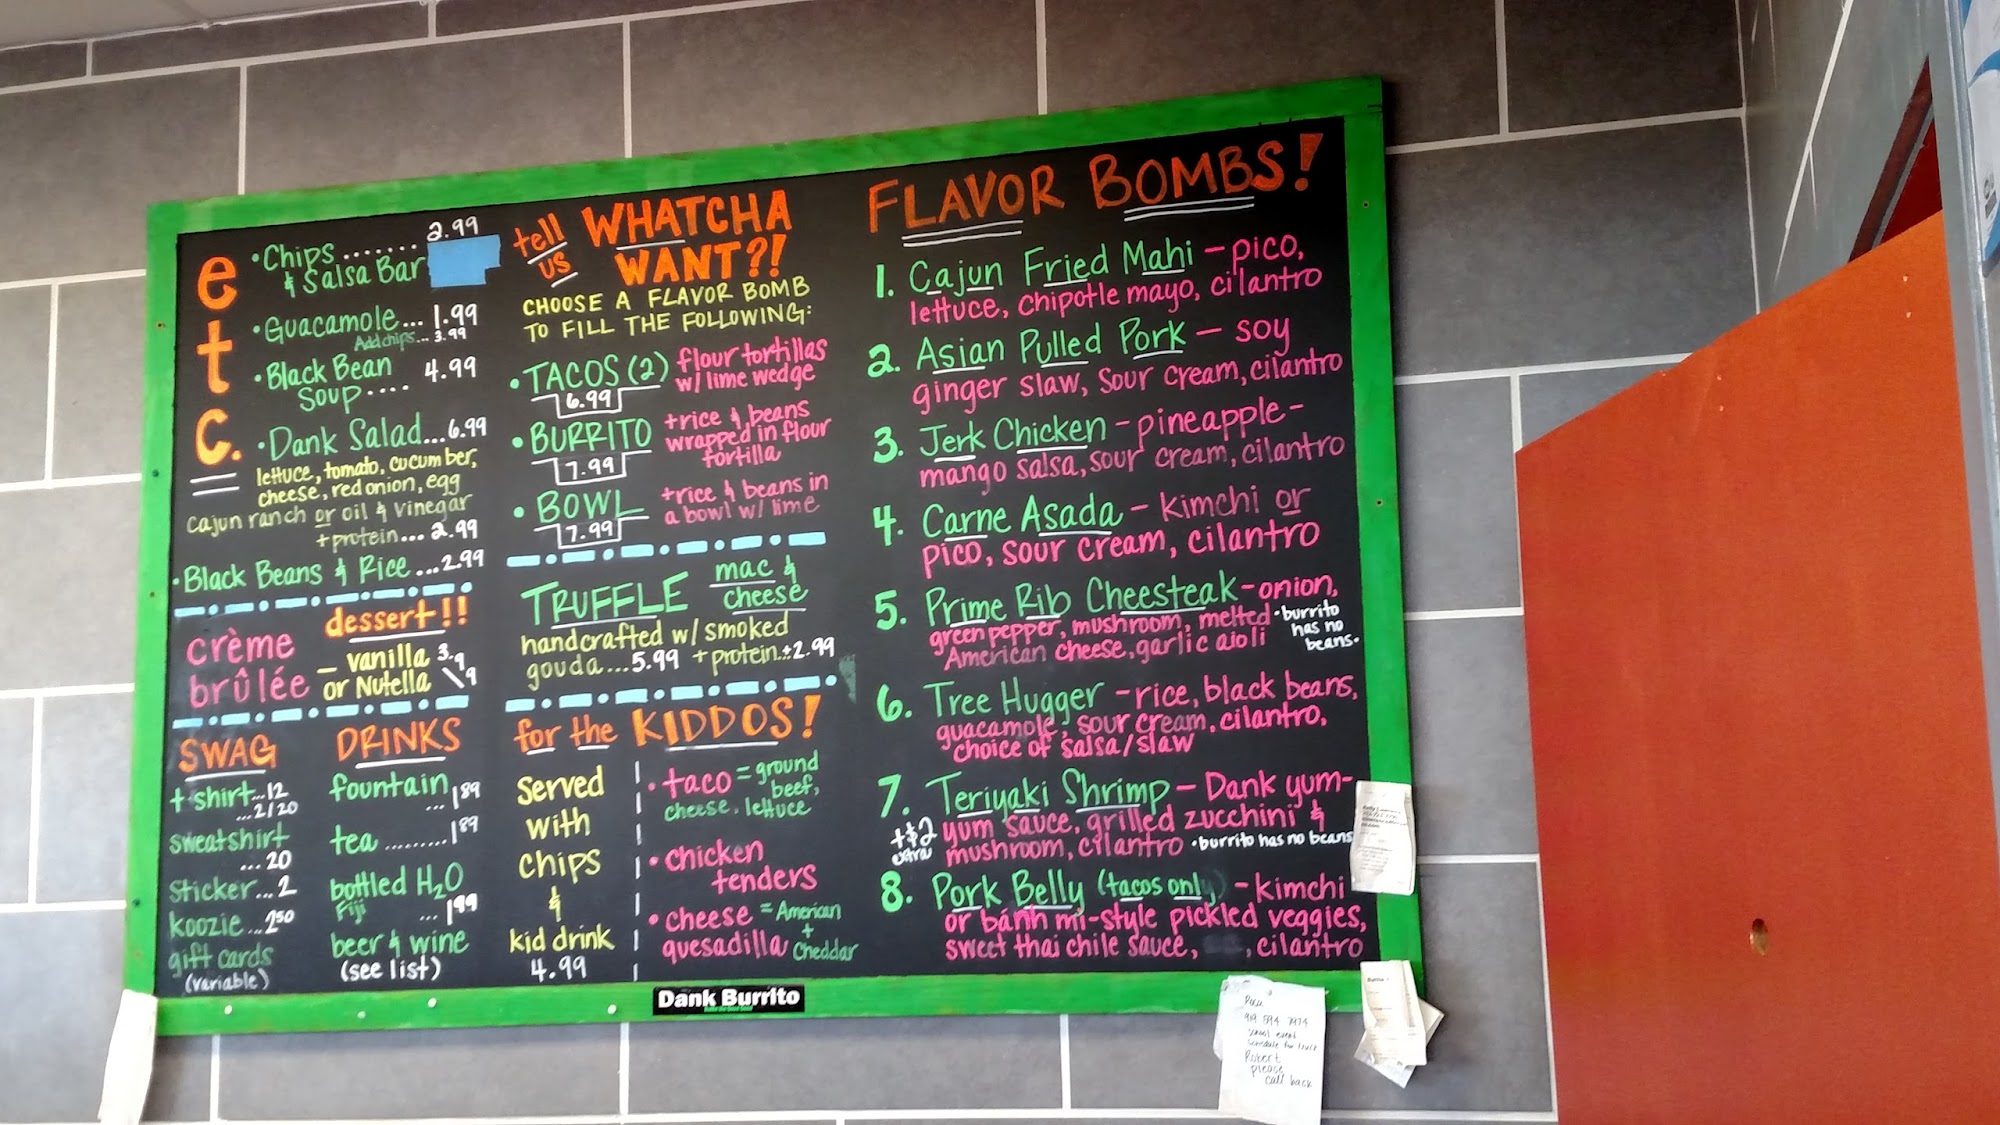 etc.
•Chips....... 2.99
& Salsa Bar
•Guacamole... 1.99
Add chips... 3.99
•Black Bean
Soup.... 4.99
•Dank Salad...6.99
lettuce, tomato, cucumber,
cheese, red onion, egg
cajun ranch or oil & vinegar
+protein.... 2.99
•Black Beans & Rice ...2.99
dessert!!
crème
brûlée
– vanilla
or Nutella
SWAG
t shirt...12
...2/20
sweatshirt
...20
sticker...2
koozie...2.50
gift cards
(variable)
DRINKS
fountain
... 1.89
tea.........1.89
bottled H2O
Fiji ... 1.99
beer & wine
(see list)
tell us WHATCHA
WANT?!
CHOOSE A FLAVOR BOMB
TO FILL THE FOLLOWING:
•TACOS (2)
6.99
flour tortillas
w/ lime wedge
•BURRITO
7.99
+rice & beans
wrapped in flour
tortilla
•BOWL
7.99
+rice & beans in
a bowl w/ lime
TRUFFLE mac &
cheese
handcrafted w/ smoked
gouda....5.99 +protein..+2.99
for the KIDDOS!
Served
with
chips
&
kid drink
4.99
•taco = ground
beef,
cheese, lettuce
•chicken
tenders
•cheese = American
+
quesadilla Cheddar
FLAVOR BOMBS!
1. Cajun Fried Mahi – pico,
lettuce, chipotle mayo, cilantro
2. Asian Pulled Pork – soy
ginger slaw, sour cream, cilantro
3. Jerk Chicken – pineapple-
mango salsa, sour cream, cilantro
4. Carne Asada – kimchi or
pico, sour cream, cilantro
5. Prime Rib Cheesteak – onion,
green pepper, mushroom, melted
American cheese, garlic aioli
•burrito
has no
beans.
6. Tree Hugger – rice, black beans,
guacamole, sour cream, cilantro,
choice of salsa/slaw
7. Teriyaki Shrimp – Dank yum-
yum sauce, grilled zucchini &
mushroom, cilantro •burrito has no beans
+$2
extra
8. Pork Belly (tacos only) – kimchi
or bánh mì-style pickled veggies,
sweet thai chile sauce, , cilantro
Dank Burrito
919 594 7974
Robert
please
call back